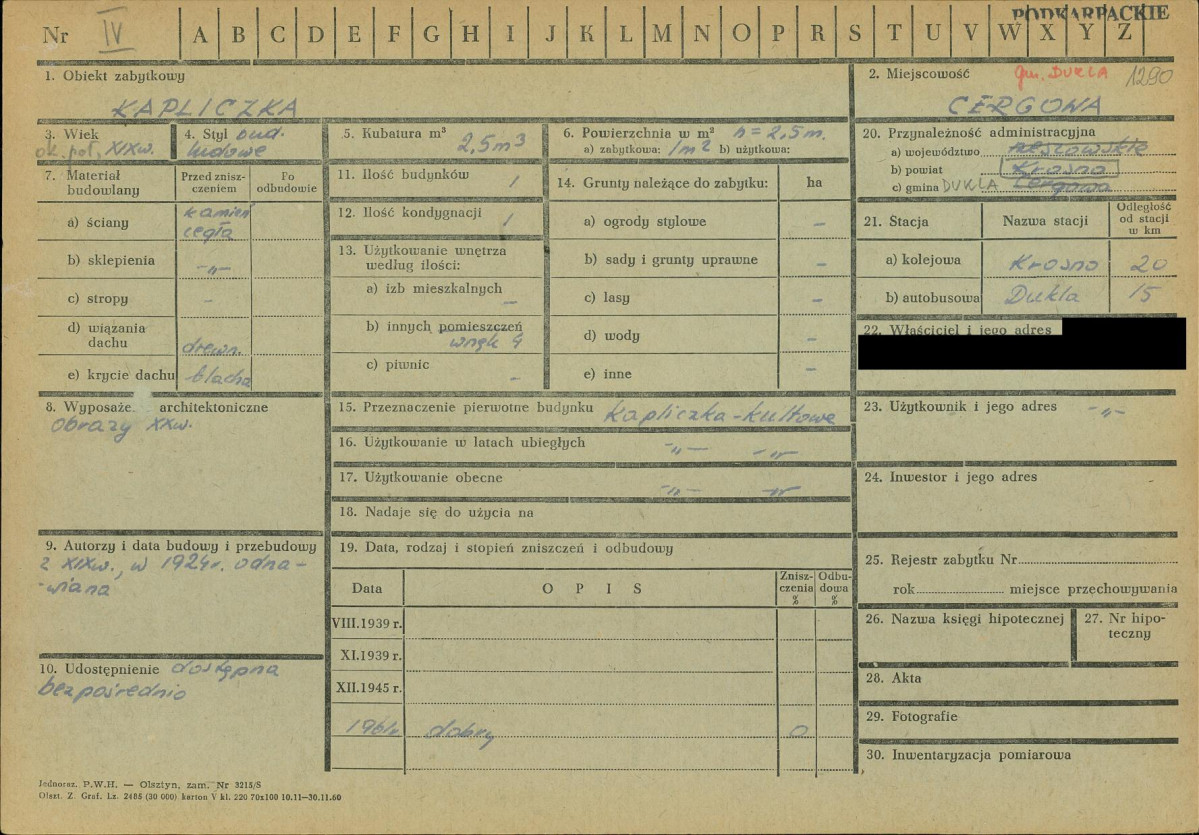 PODKARPACKIE
Nr IV A B C D E F G H I J K L M N O P R S T U V W X Y Z
1. Obiekt zabytkowy
KAPLICZKA
2. Miejscowość gm. DUKLA 1290
CERGOWA
3. Wiek
ok. poł. XIXw.
4. Styl bud.
ludowe
5. Kubatura m³
2,5m3
6. Powierzchnia w m² h = 2,5 m.
a) zabytkowa: 1m2 b) użytkowa:
20. Przynależność administracyjna
a) województwo rzeszowskie
b) powiat Krosno
c) gmina DUKLA Cergowa
7. Materiał
budowlany
Przed znisz-
czeniem
Po
odbudowie
a) ściany kamień
cegła
b) sklepienia -„-
c) stropy -
d) wiązania
dachu drewn.
e) krycie dachu blacha
11. Ilość budynków 1
12. Ilość kondygnacji 1
13. Użytkowanie wnętrza
według ilości:
a) izb mieszkalnych -
b) innych pomieszczeń
wnęk 4
c) piwnic -
14. Grunty należące do zabytku: ha
a) ogrody stylowe -
b) sady i grunty uprawne -
c) lasy -
d) wody -
e) inne -
21. Stacja Nazwa stacji Odległość
od stacji
w km
a) kolejowa Krosno 20
b) autobusowa Dukla 15
22. Właściciel i jego adres
8. Wyposaże architektoniczne
obrazy XXw.
15. Przeznaczenie pierwotne budynku kapliczka-kultowe
16. Użytkowanie w latach ubiegłych -„- -„-
17. Użytkowanie obecne -„- -„-
18. Nadaje się do użycia na
23. Użytkownik i jego adres -„-
24. Inwestor i jego adres
9. Autorzy i data budowy i przebudowy
z XIXw., w 1924r. odna-
-wiana
10. Udostępnienie dostępna
bezpośrednio
19. Data, rodzaj i stopień zniszczeń i odbudowy
Data OPIS Znisz-
czenia
% Odbu-
dowa
%
VIII.1939 r.
XI.1939 r.
XII.1945 r.
1961r. dobry 0
25. Rejestr zabytku Nr
rok miejsce przechowywania
26. Nazwa księgi hipotecznej
27. Nr hipo-
teczny
28. Akta
29. Fotografie
30. Inwentaryzacja pomiarowa
Jednoraz. P.W.H. — Olsztyn, zam. Nr 3215/S
Olszt. Z. Graf. Lz. 2485 (30 000) karton V kl. 220 70x100 10.11—30.11.60